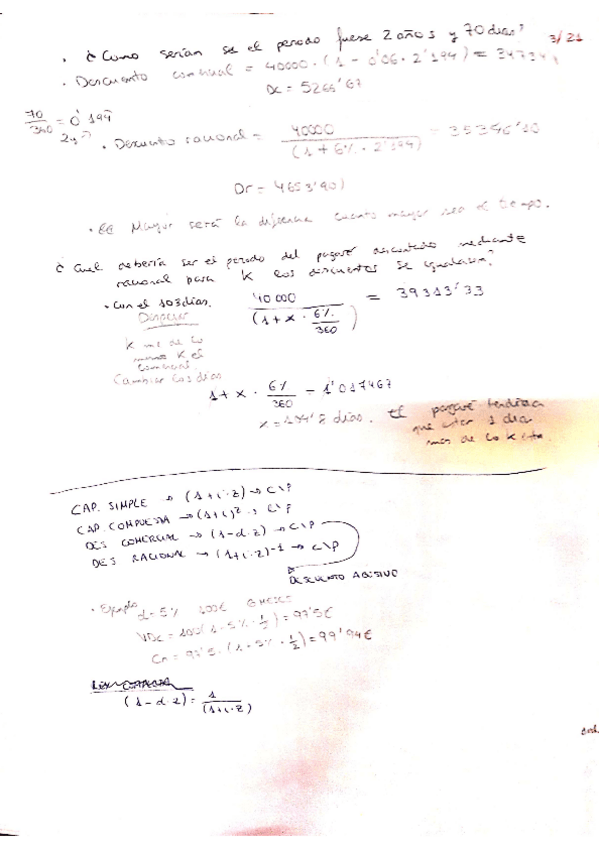 3/21
. ¿Como serían si el periodo fuese 2 años y 70 dias?
. Descuento comercial = 40000 · (1 - 0'06 · 2'194) = 34734
Dc = 5266'67
70/360 = 0'194
2y
. Descuento racional = 40000 / (1 + 6% · 2'194) = 35346'10
Dr = 4653'90)
. Mayor será la diferencia cuanto mayor sea el tiempo.
¿Cual debería ser el periodo del pagaré descontado mediante
racional para K los descuentos se igualasen?
. Con el 103 dias. 40 000 / (1 + x · 6%/360) = 39313'33
Despejar
K me de lo
mismo K el
comercial.
Cambiar los días
1 + x · 6%/360 = 1'017467
x = 104'8 dias. El pagaré tendría
que estar 1 dia
mas de lo K esta.
CAP. SIMPLE → (1+i·z) → C\P
CAP. COMPUESTA → (1+i)^z → C\P
DES COMERCIAL → (1-d·z) → C\P
DES RACIONAL → (1+i·z)-1 → C\P
DESCUENTO
· Ejemplo d=5% 100€ 6 MESES
VDc = 100(1 - 5% · 1/2) = 97'5€
Cn = 97'5 · (1 + 5% · 1/2) = 99'94€
(1-d·z) = 1 / (1+i·z)